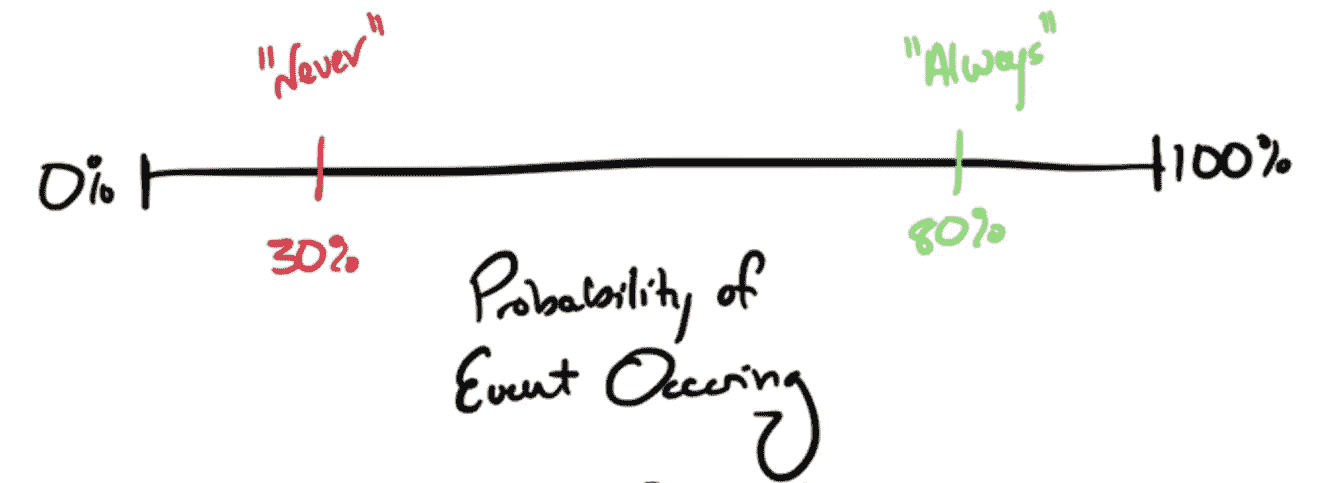 "Never" "Always"
0% 100%
30% 80%
Probability of
Event Occuring